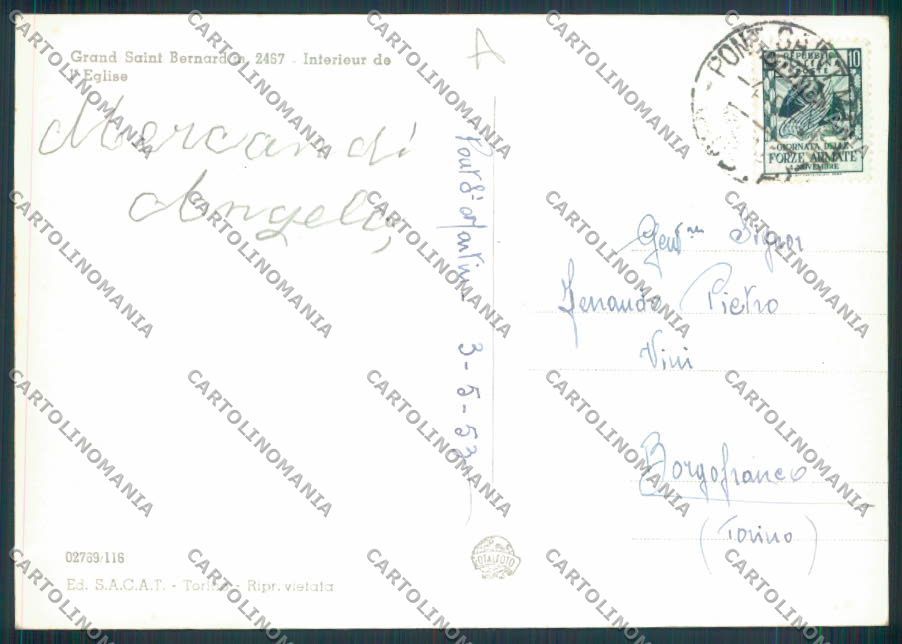 Grand Saint Bernard m. 2467 - Interieur de
l'Eglise
Mercandi
Angelo
A
Pont St Martin 3-5-53
PONT
REPUBBLICA
10
GIORNATA DELLE
FORZE ARMATE
NOVEMBRE
Gent.mo Signor
Pietro
Vini
Borgofranco
(Torino)
02769/116
Ed. S.A.C.A.T. - Torino - Ripr. vietata
FOTALFOTO
CARTOLINOMANIA